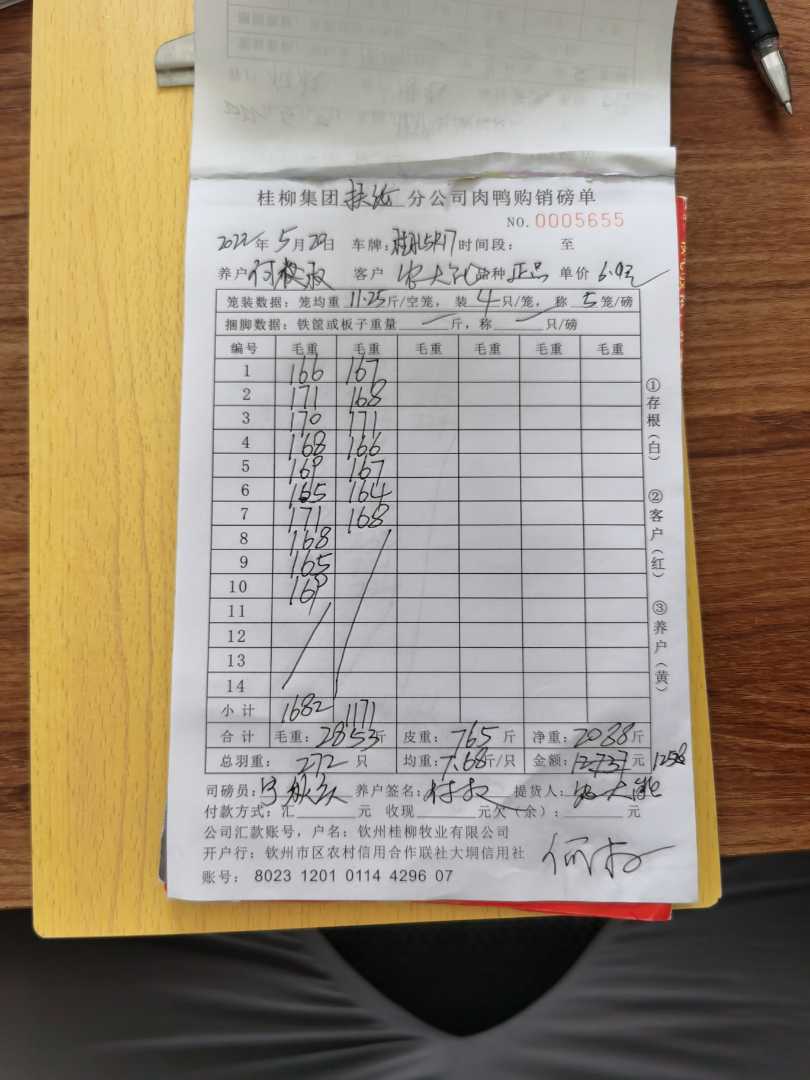 桂柳集团扶绥分公司肉鸭购销磅单
NO.0005655
2022年5月29日 车牌: 时间段: 至
养户 客户 品种正品 单价6.
笼装数据:笼均重11.25斤/空笼,装4只/笼,称5笼/磅
捆脚数据:铁筐或板子重量 斤,称 只/磅
编号 毛重 毛重 毛重 毛重 毛重 毛重
1 166 167
2 171 168
3 170 171
4 168 166
5 169 167
6 165 164
7 171 168
8 168
9 165
10 169
11
12
13
14
小计 1682 1171
合计 毛重:2853斤 皮重:765斤 净重:2088斤
总羽重:272只 均重:7.68斤/只 金额:12737元 1258
司磅员: 养户签名: 提货人:
付款方式:汇 元 收现 元欠(余): 元
公司汇款账号,户名:钦州桂柳牧业有限公司
开户行:钦州市区农村信用合作联社大垌信用社
账号: 8023 1201 0114 4296 07
①存根(白)
②客户(红)
③养户(黄)